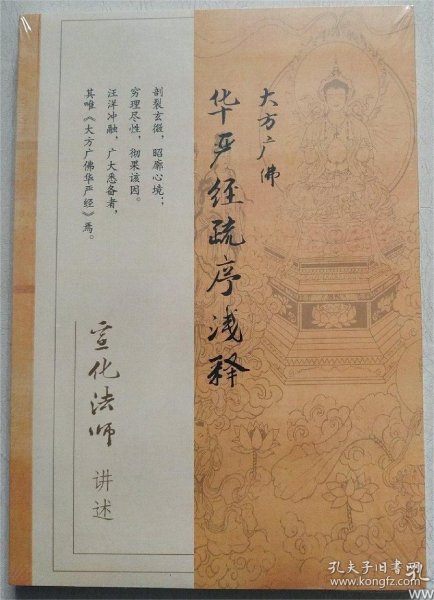 大方广佛
华严经疏序浅释
剖裂玄微，昭廓心境；
穷理尽性，彻果该因。
汪洋冲融，广大悉备者，
其唯《大方广佛华严经》焉。
宣化法师
讲述
孔夫子旧书网
www.kongfz.com
孔
WW